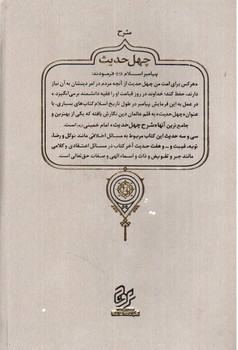 شرح
چهل حدیث
پیامبر اسلام ﷺ فرمودند:
«هرکس برای امت من چهل حدیث از آنچه مردم در امر دینشان به آن نیاز
دارند، حفظ کند؛ خداوند در روز قیامت او را فقیه دانشمند برمی‌انگیزد.»
در عمل به این فرمایش پیامبر در طول تاریخ اسلام کتاب‌های بسیاری، با
عنوان «چهل حدیث» به قلم عالمان دین نگارش یافته که یکی از بهترین و
جامع‌ترین آنها «شرح چهل حدیث» امام خمینی است.
سی و سه حدیث این کتاب مربوط به مسائل اخلاقی مانند توکل و رضا،
توبه، غیبت و... و هفت حدیث آخر کتاب در مسائل اعتقادی و کلامی
مانند جبر و تفویض و ذات و اسماء الهی و صفات حق‌تعالی است.